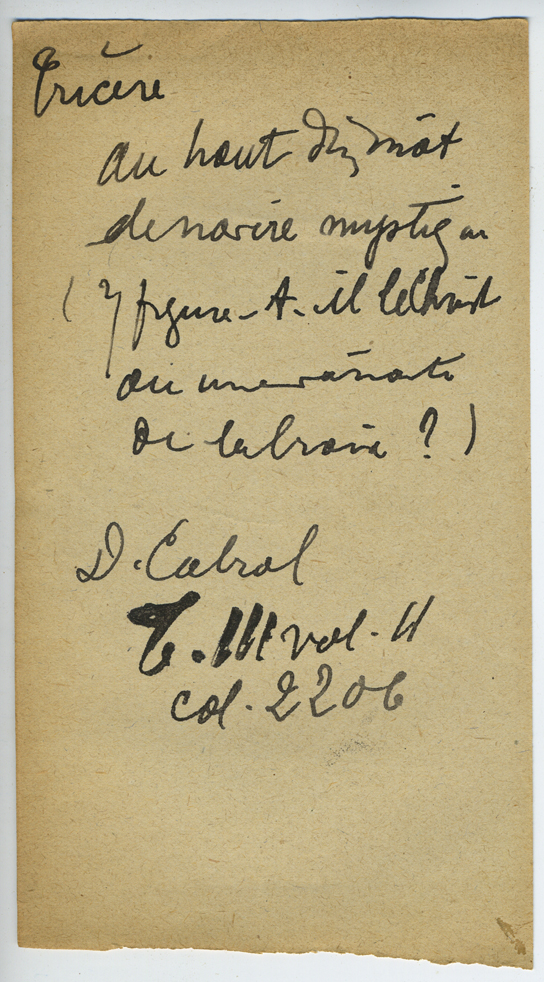 au haut du mât
de navire mystique
( y figure-t-il le Christ
ou une variante
de la croix ? )
D. Cabrol
T. III vol. II
col. 2206